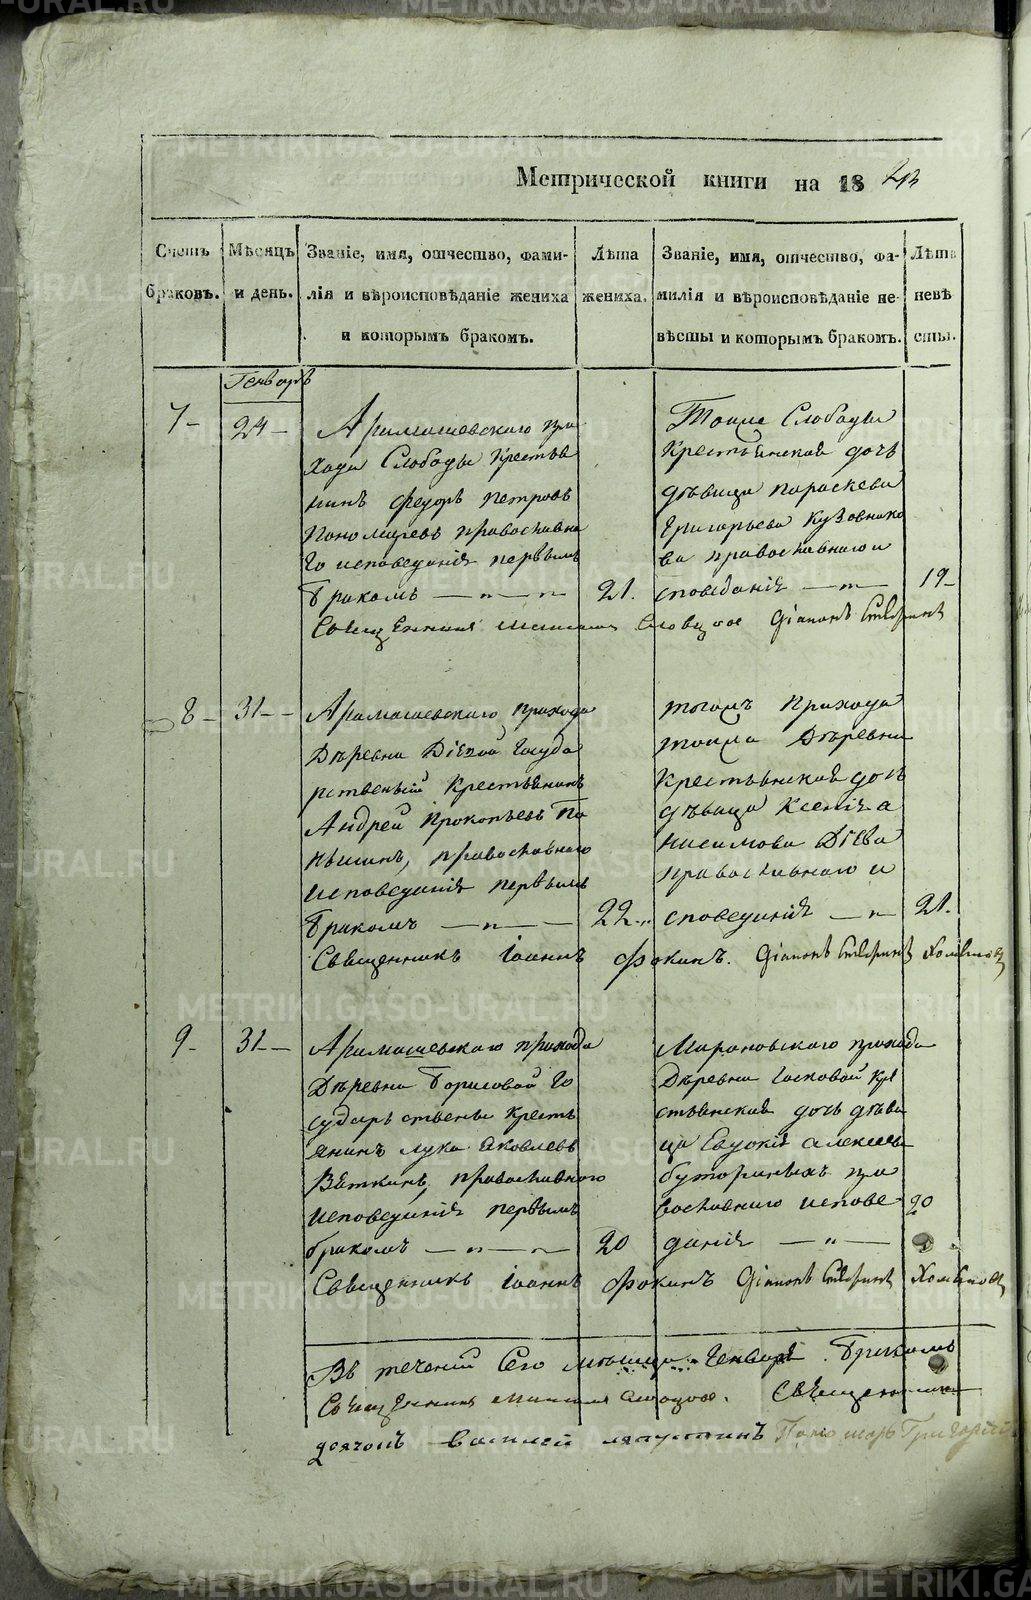 Метрической книги на 18
Счетъ браковъ.
Мѣсяцъ и день.
Званіе, имя, отчество, фами-
лія и вѣроисповѣданіе жениха
и которымъ бракомъ.
Лѣта жениха.
Званіе, имя, отчество, фа-
милія и вѣроисповѣданіе не-
вѣсты и которымъ бракомъ.
Лѣта невѣсты.
Генварь
7 24
Арамашевскаго при
хода Слободы Крестья
нинъ Федоръ Петровъ
Пономаревъ православна
го исповеданія первымъ
бракомъ 21.
Тоиже Слободы
Крестьянская дочь
дѣвица Параскева
Григорьева Кузовнико
ва православнаго и
споведанія 19
Священникъ
8 31
Арамашевскаго прихода
Дѣревни Діевой Госуда
рственный Крестьянинъ
Андрей Прокопьевъ Па
ньшинъ, православнаго
исповеданія первымъ
бракомъ 22
тогожъ Прихода
тоижа Дѣревни
Крестьянская дочь
дѣвица Ксенія а
нисимова Діева
православнаго и
споведанія 21.
Священникъ Іоаннъ Фокинъ.
9 31
Арамашевскаго прихода
Дѣревни Борисовой Го
сударственны Кресть
янинъ Лука Яковлевъ
Вяткинъ, православнаго
исповеданія первымъ
бракомъ 20
Мироновскаго прихода
Дѣревни Кре
стьянская дочь дѣви
ца Евдокія Алексеева
буториныхъ пра
вославнаго испове 20
данія
Священникъ Іоаннъ Фокинъ
Въ течении Сего месяца Генваря Бракомъ
дьячокъ Василей Лапустинъ Пономарь Григорій
METRIKI.GASO-URAL.RU